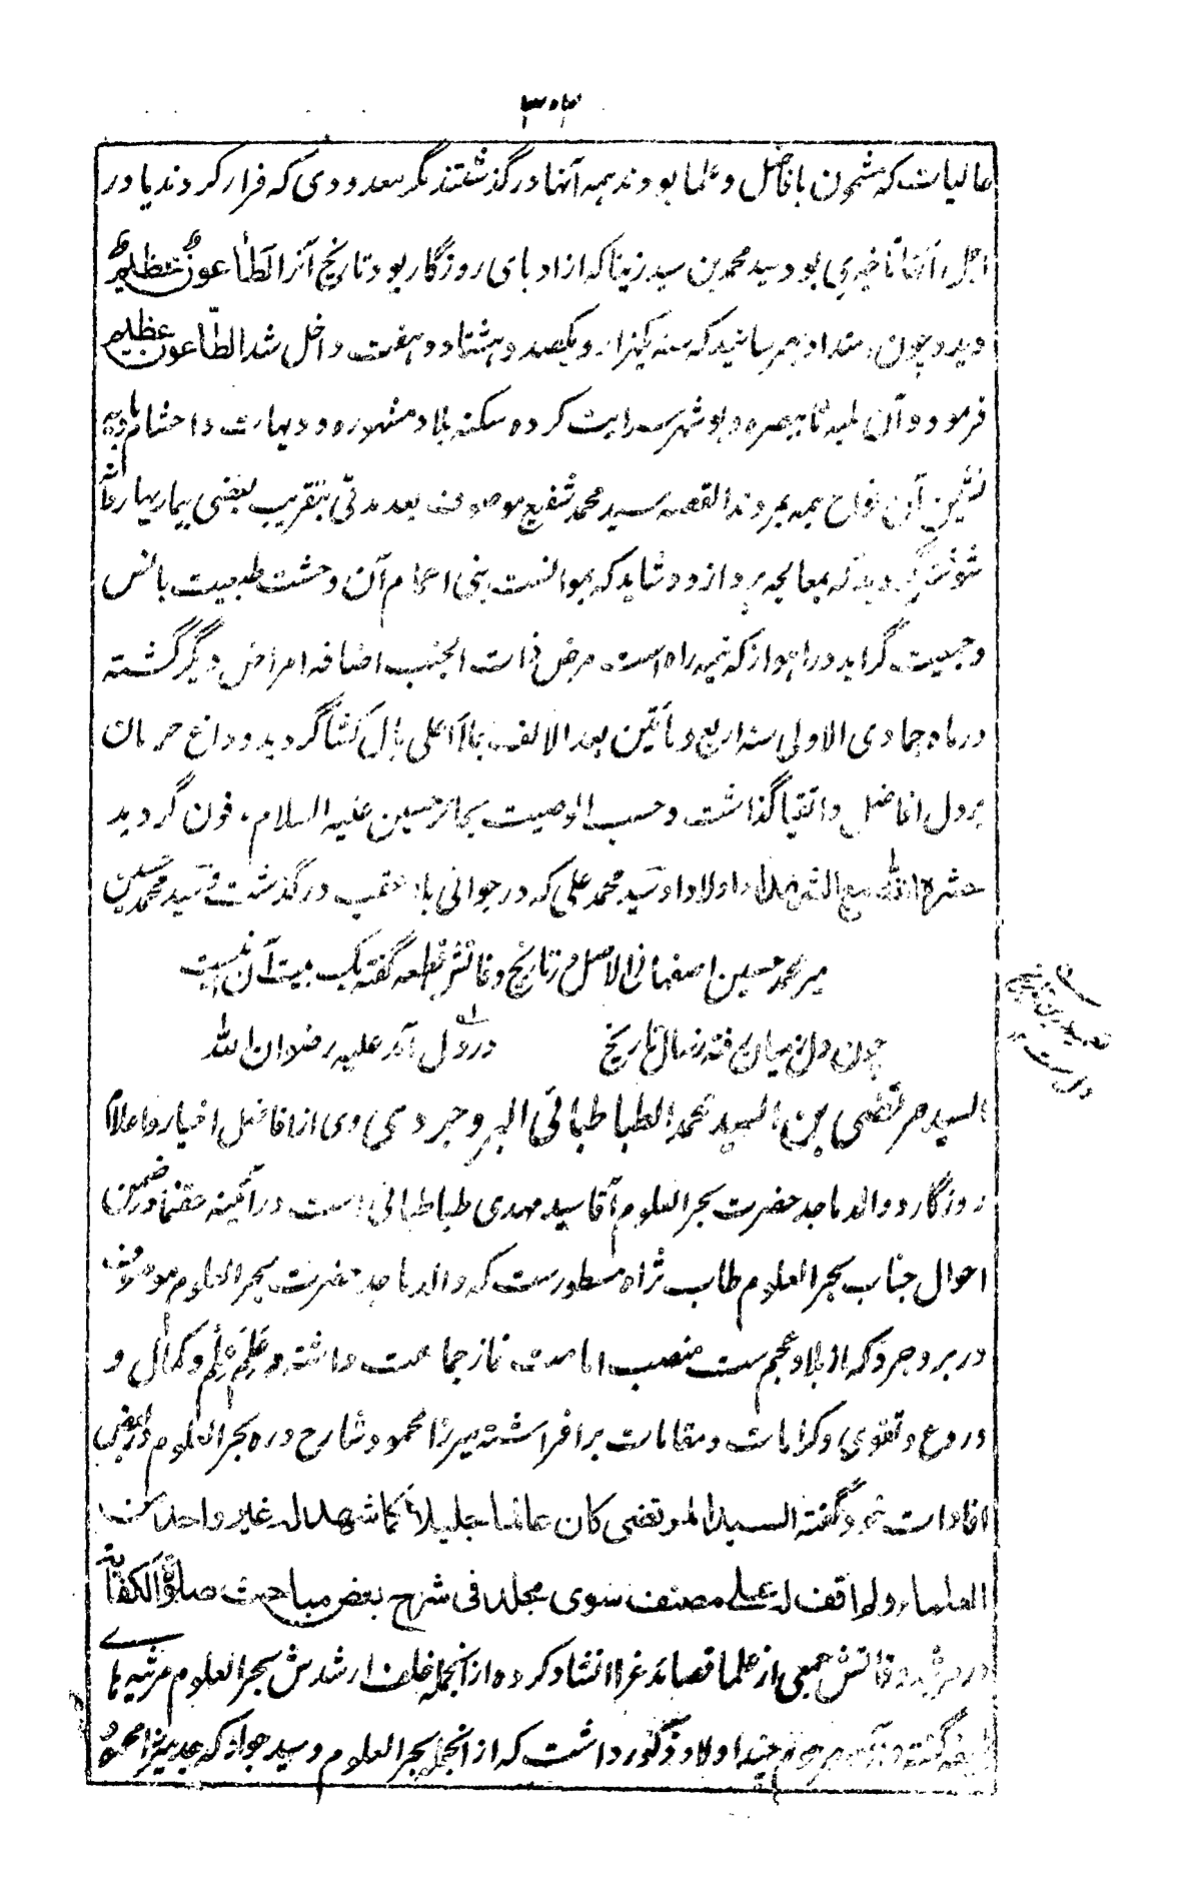 عالیات که مشحون بافاضل و علما بودند همه آنها درگذشتند مگر معدودی که فرار کردند یا در
اجل آنها تاخیری بود سید محمد بن سید زینا که از ادبای روزگار بود تاریخ آنرا الطاعونُ عظیمٌ
دید و چون بهر سانید که سنه یکهزار و یکصد و هشتاد و هفت داخل شد الطّاعون عظیم
فرمود و آن بلیه تا ببصره و بوشهر سرایت کرده سکنه بلاد مشهوره و دیهات و احشام بادیه
نشین آن نواح همه بمردند القصه سید محمد شفیع موصوف بعد مدتی بتقریب بعضی بیماریها
که بمعالجه پردازد و شاید که بموانست بنی اعمام آن وحشت طبیعت بانس
و جمعیت گراید در اهواز که نیمه راه است مرض ذات الجنب اضافه امراض دیگر گشته
در ماه جمادی الاولی سنه اربع و مأتین بعد الالف ببالا اعلی بال کشا گردید و داغ حرمان
بر دل افاضل و اتقیا گذاشت و حسب الوصیت بحائر حسین علیه السلام مدفون گردید
حشره الله مع الشهداء اولاد او سید محمد علی که در جوانی بلا عقب درگذشت و سید محمد حسین
میر محمد حسین اصفهانی الاصل در تاریخ وفاتش قطعه گفته یک بیت آن اینست
چون دل از میان رفته ز سال تاریخ در دل آمد علیه رضوان الله
السید مرتضی بن السید محمد الطباطبائی البروجردی وی از افاضل اخیار و اعلام
روزگار و والد ماجد حضرت بحر العلوم آقا سید مهدی طباطبائی است در آئینه حقنما در ضمن
احوال جناب بحر العلوم طاب ثراه مسطورست که والد ماجد حضرت بحر العلوم موصوف
در بروجرد که از بلاد عجم ست منصب امامت نماز جماعت داشته و عَلَمِ عِلْم و کمال و
ورع و تقوی و کرامات و مقامات برافراشته میرزا محمود شارح دره بحر العلوم در بعض
افادات خود گفته السید المرتضی کان عالما جلیلا کما شهد له غیر واحد من
العلماء ولم اقف له علی مصنف سوی مجلد فی شرح بعض مباحث صلوة الکفایة
در مرثیه وفاتش جمعی از علما قصائد غرا انشاد کرده از آنجمله خلف ارشدش بحر العلوم مرثیه های
گفته و آن مرحوم چند اولاد ذکور داشت که از انجمله بحر العلوم و سید جواد که جد میرزا محمود